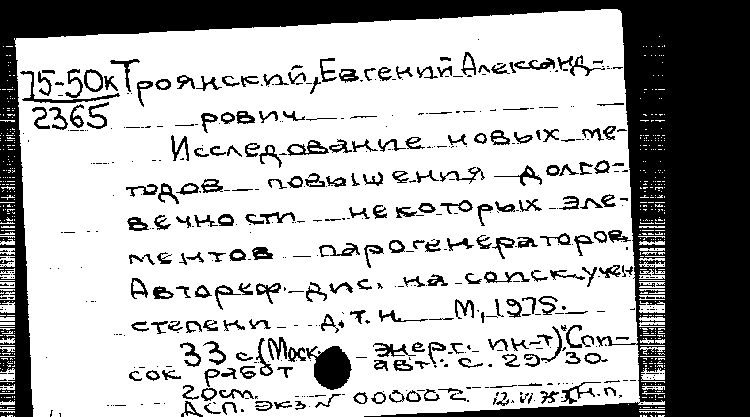 75-50к Троянский, Евгений Александ-
2365 рович
Исследование новых ме-
тодов повышения долго-
вечности некоторых эле-
ментов парогенераторов.
Автореф. дис. на соиск. учен.
степени д.т.н. М., 1975.
33 с. (Моск. энерг. ин-т) Спи-
сок работ авт.: с. 29-30.
20см.
ДСП. Экз № 000002 12.VI.75 Н.п.